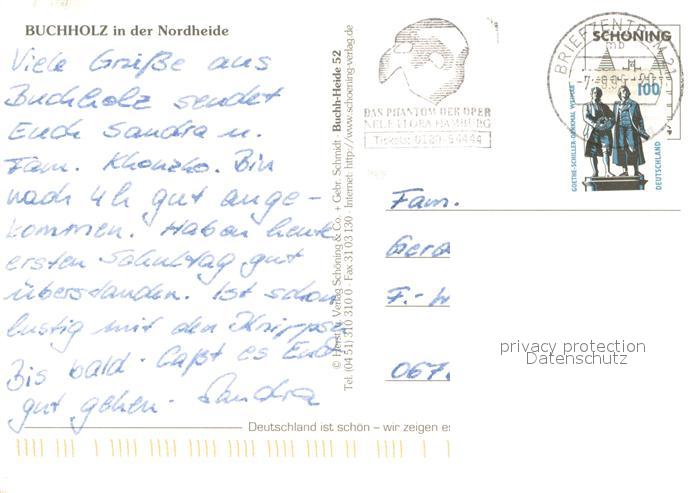 BUCHHOLZ in der Nordheide
Viele Grüße aus
Buchholz sendet
Euch Sandra u.
Fam. Bin
nach 4h gut ange-
kommen. Haben heute
ersten Schultag gut
überstanden. Ist schon
lustig mit den
Bis bald. Laßt es Euch
gut gehen. Sandra
© Horst u. Verlag Schöning & Co. + Gebr. Schmidt · Buchh-Heide 52
Tel. (04 51) 310 310 0 · Fax 31 03 130 · Internet: http://www.schoening-verlag.de
DAS PHANTOM DER OPER
NEUE FLORA HAMBURG
Tickets: 0180-5 44 44
BRIEFZENTRUM 21
mb
SCHÖNING
100
GOETHE-SCHILLER-DENKMAL WEIMAR
DEUTSCHLAND
Fam.
Gera
F.-
067
privacy protection
Datenschutz
Deutschland ist schön – wir zeigen es